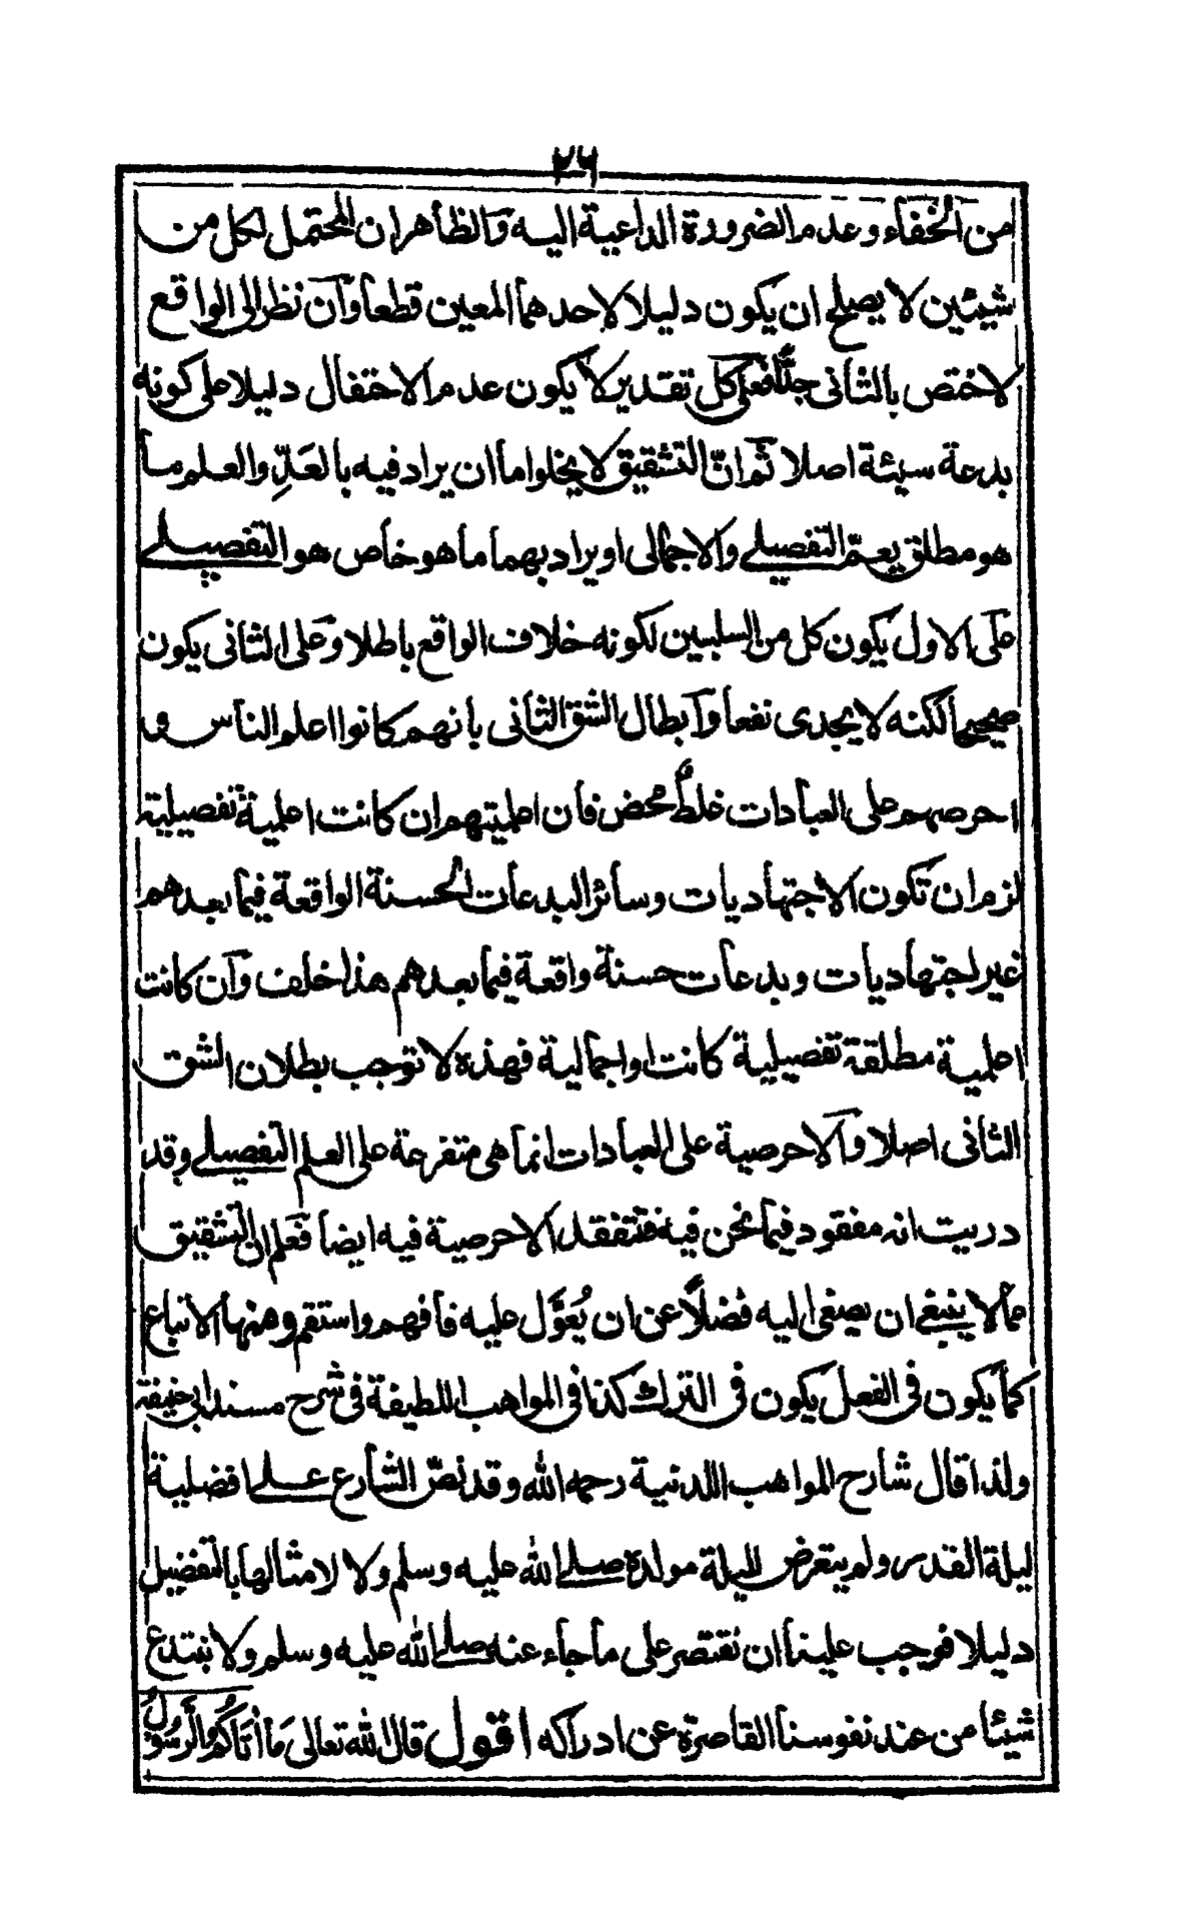 ٢٦
من الخفاء وعدم الضرورة الداعية اليه والظاهر ان المحتمل لكل من
شيئين لا يصلح ان يكون دليلا لاحدهما المعين قطعا وان نظر الى الواقع
لاختص بالثانى جدًّا فعلى كل تقدير لا يكون عدم الاحتفال دليلا على كونه
بدعة سيئة اصلا ثم انّ التشقيق لا يخلو اما ان يراد فيه بالعدّ والعلم ما
هو مطلق يعمّ التفصيلے والاجمالى او يراد بهما ما هو خاص هو التفصيلے
على الاول يكون كل من السلبين لكونه خلاف الواقع باطلا وعلى الثانى يكون
صحيحا لكنه لا يجدى نفعا وابطال الشق الثانى بانهم كانوا اعلم الناس و
احرصهم على العبادات غلطٌ محض فان اعلميتهم ان كانت اعلمية تفصيلية
لزم ان تكون الاجتهاديات وسائر البدعات الحسنة الواقعة فيما بعدهم
غير اجتهاديات وبدعات حسنة واقعة فيما بعدهم هذا خلف وان كانت
اعلمية مطلقة تفصيلية كانت او اجمالية فهذه لا توجب بطلان الشق
الثانى اصلا والاحرصية على العبادات انما هى متفرعة على العلم التفصيلے وقد
دريت انه مفقود فيما نحن فيه فتفقد الاحرصية فيه ايضا فعلم ان التشقيق
مما لا ينبغے ان يصغى اليه فضلًا عن ان يُعوَّل عليه فافهم واستقم ومنها الاتباع
كما يكون فى الفعل يكون فى الترك كذا فى المواهب اللطيفة فى شرح مسند ابى حنيفة
ولذا قال شارح المواهب اللدنية رحمه الله وقد نصّ الشارع علے افضلية
ليلة القدر ولم يتعرض لليلة مولده صلے الله عليه وسلم ولا لامثالها بالتفضيل
دليلا فوجب علينا ان نقتصر على ما جاء عنه صلے الله عليه وسلم ولا نبتدع
شيئا من عند نفوسنا القاصرة عن ادراكه اقول قال الله تعالى مَا اٰتَاكُمُ الرَّسُوْلُ